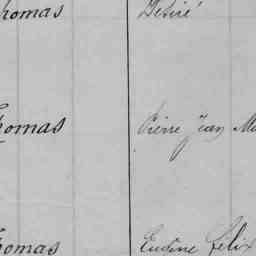 Thomas Désiré
Thomas Pierre Jean Ma
Thomas Eugène Félix